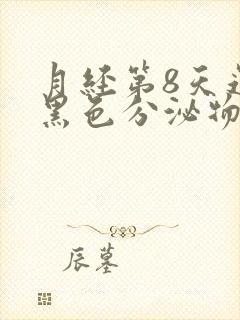 月经第8天
黑色分泌物
辰墓